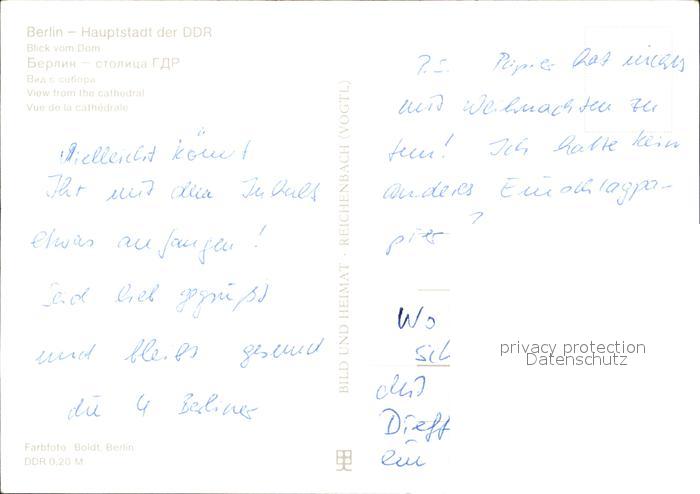 Berlin – Hauptstadt der DDR
Blick vom Dom
Берлин – столица ГДР
Вид с собора
View from the cathedral
Vue de la cathédrale
Vielleicht könnt
Ihr mit dem Inhalt
etwas anfangen!
Seid lieb gegrüßt
und bleibt gesund
die 4 Berliner
Farbfoto: Boldt, Berlin
DDR 0,20 M
BILD UND HEIMAT · REICHENBACH (VOGTL)
P.S. Papier hat nichts
mit Weihnachten zu
tun! Ich hatte kein
anderes Einschlagpa-
pier
Wo
sich
Dieff
ein
privacy protection
Datenschutz